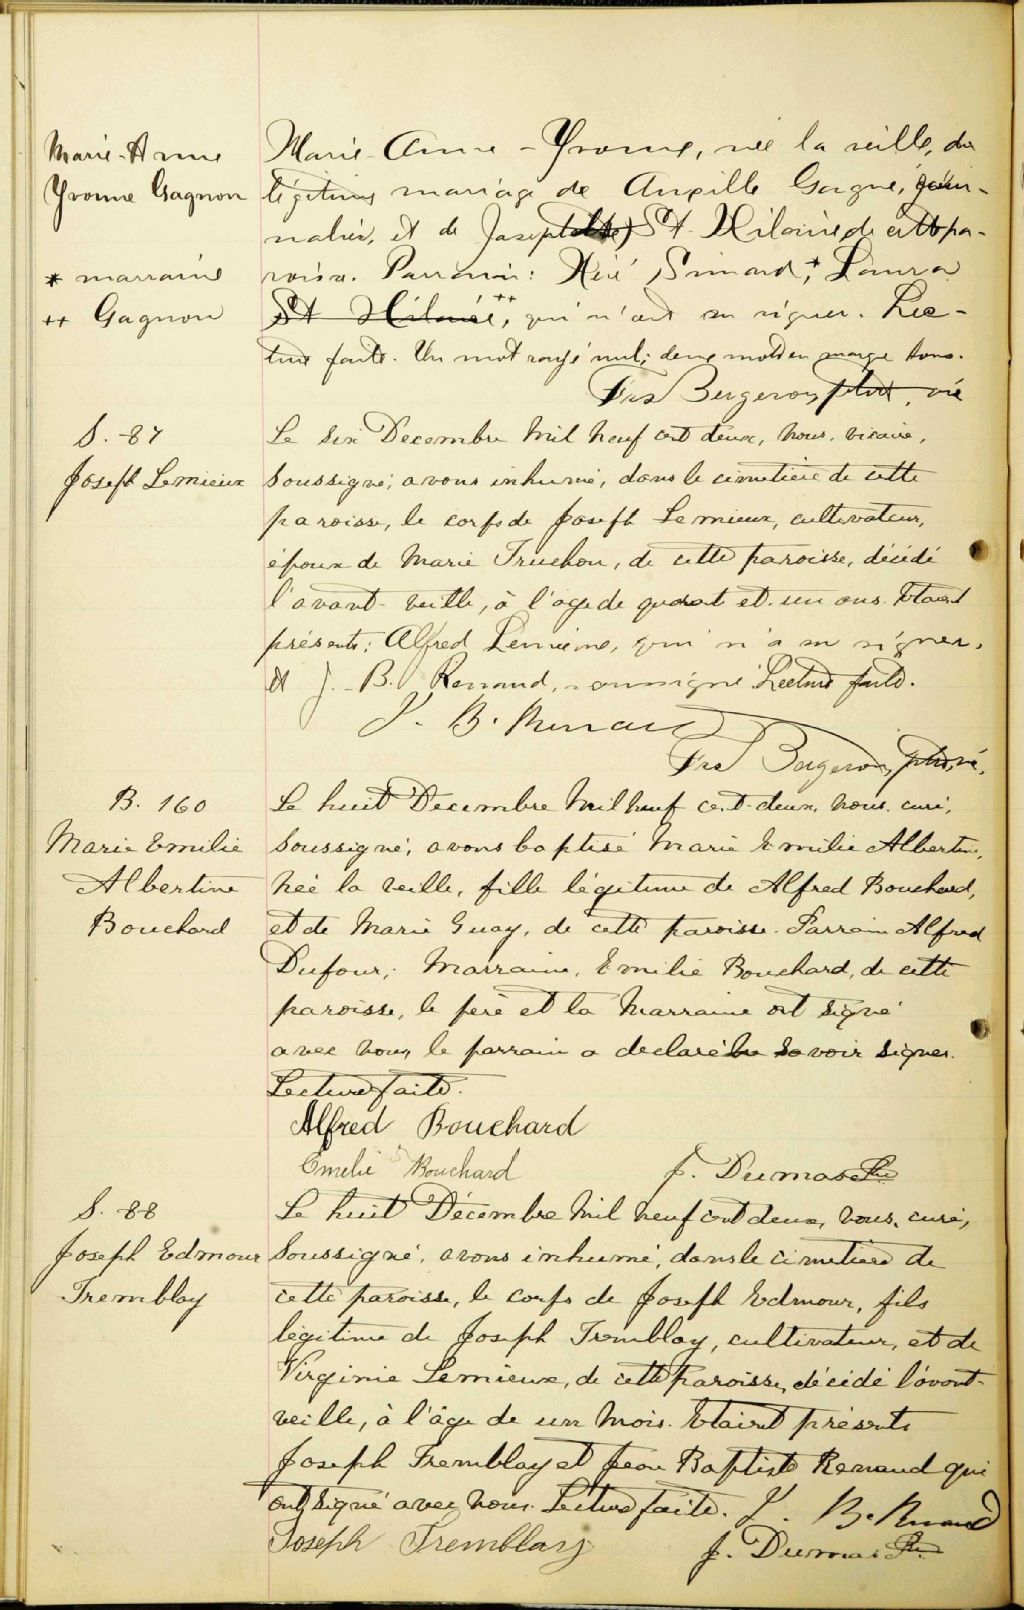 Marie-Anne
Yvonne Gagnon
* marraine
++ Gagnon
Marie-Anne-Yvonne, née la veille, du
légitime mariage de Gagné, jour-
nalier, et de St-Hilaire de cette pa-
roisse. Parrain: Simard,* Laura
St Hilaire++, qui n'ont su signer. Lec-
ture faite. Un mot rayé nul; deux mots en marge bons.
Frs Bergeron, ptre, vic
S. -87
Joseph Lemieux
Le six Décembre mil neuf cent deux, nous, vicaire,
soussigné, avons inhumé, dans le cimetière de cette
paroisse, le corps de Joseph Lemieux, cultivateur,
époux de Marie Truchon, de cette paroisse, décédé
l'avant-veille, à l'age de quarante et un ans. Étaient
présents: Alfred Lemieux, qui n'a su signer,
et J.-B. Renaud, soussigné Lecture faite.
J. B. Renaud
Frs Bergeron, ptre, vic.
B. 160
Marie Emilie
Albertine
Bouchard
Le huit Décembre mil neuf cent-deux, nous, curé,
soussigné, avons baptisé Marie Emilie Albertine,
née la veille, fille légitime de Alfred Bouchard,
et de Marie Guay, de cette paroisse. Parrain Alfred
Dufour; Marraine, Emilie Bouchard, de cette
paroisse, le père et la Marraine ont signé
avec nous, le parrain a déclaré ne savoir signer.
Lecture faite.
Alfred Bouchard
Emelie Bouchard J. Dumas Ptre
S. -88
Joseph Edmour
Tremblay
Le huit Décembre mil neuf cent deux, nous, curé,
soussigné, avons inhumé, dans le cimetière de
cette paroisse, le corps de Joseph Edmour, fils
légitime de Joseph Tremblay, cultivateur, et de
Virginie Lemieux, de cette paroisse, décédé l'avant-
veille, à l'âge de un mois. Étaient présents
Joseph Tremblay et Jean Baptiste Renaud qui
ont signé avec nous. Lecture faite. J. B. Renaud
Joseph Tremblay J. Dumas Ptre